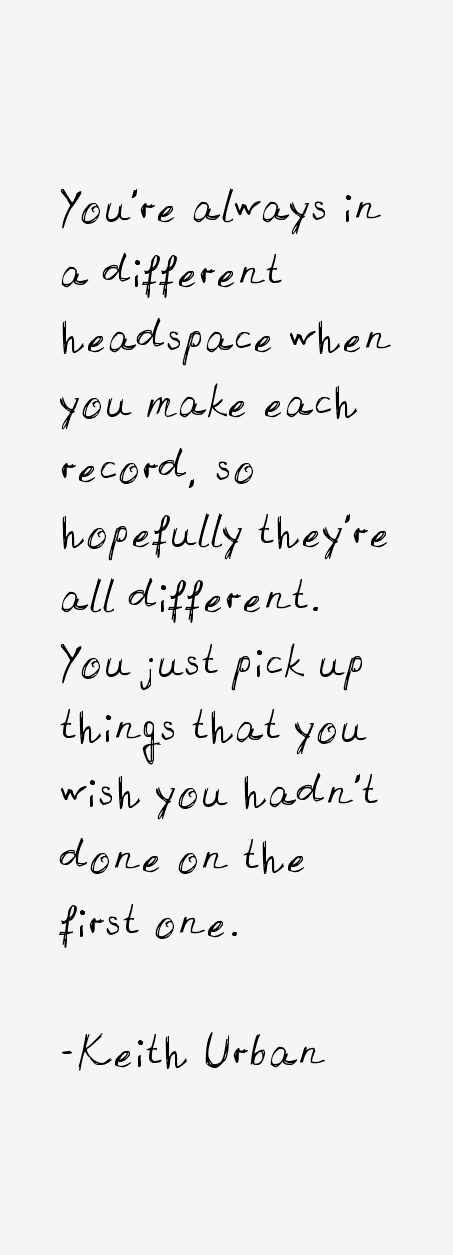 You're always in
a different
headspace when
you make each
record, so
hopefully they're
all different.
You just pick up
things that you
wish you hadn't
done on the
first one.
-Keith Urban